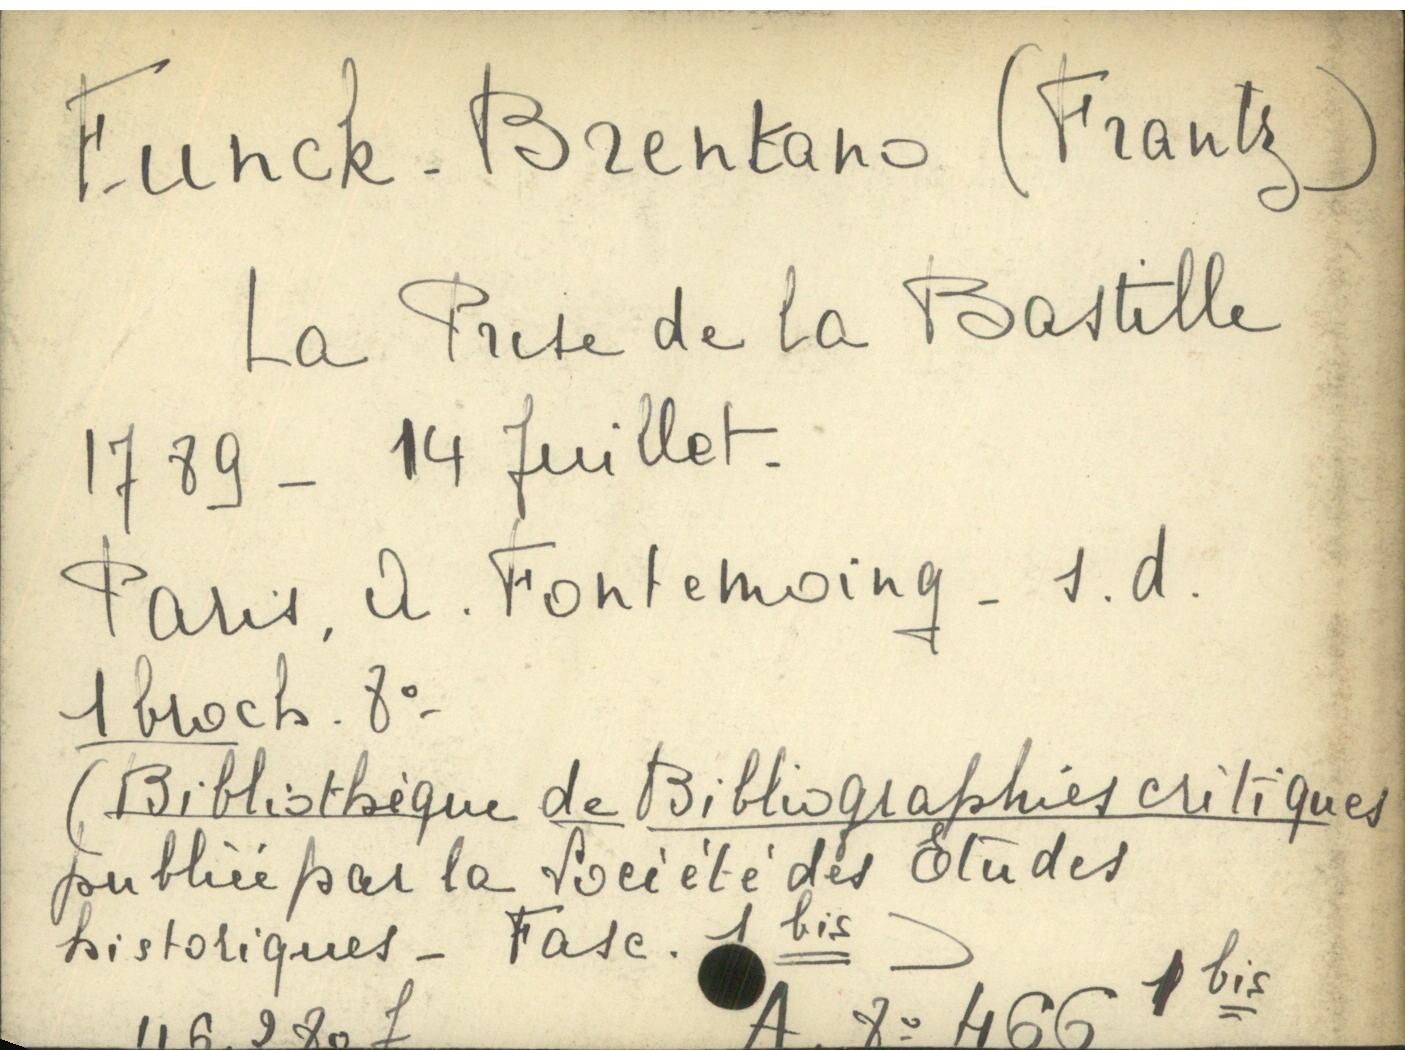 Funck-Brentano (Frantz)
La Prise de la Bastille
1789 - 14 Juillet.
Paris, A. Fontemoing - s.d.
1 broch. 8°-
(Bibliothèque de Bibliographies critiques
publiée par la Société des Etudes
historiques - Fasc. 1 bis)
A. 8° 466 1 bis